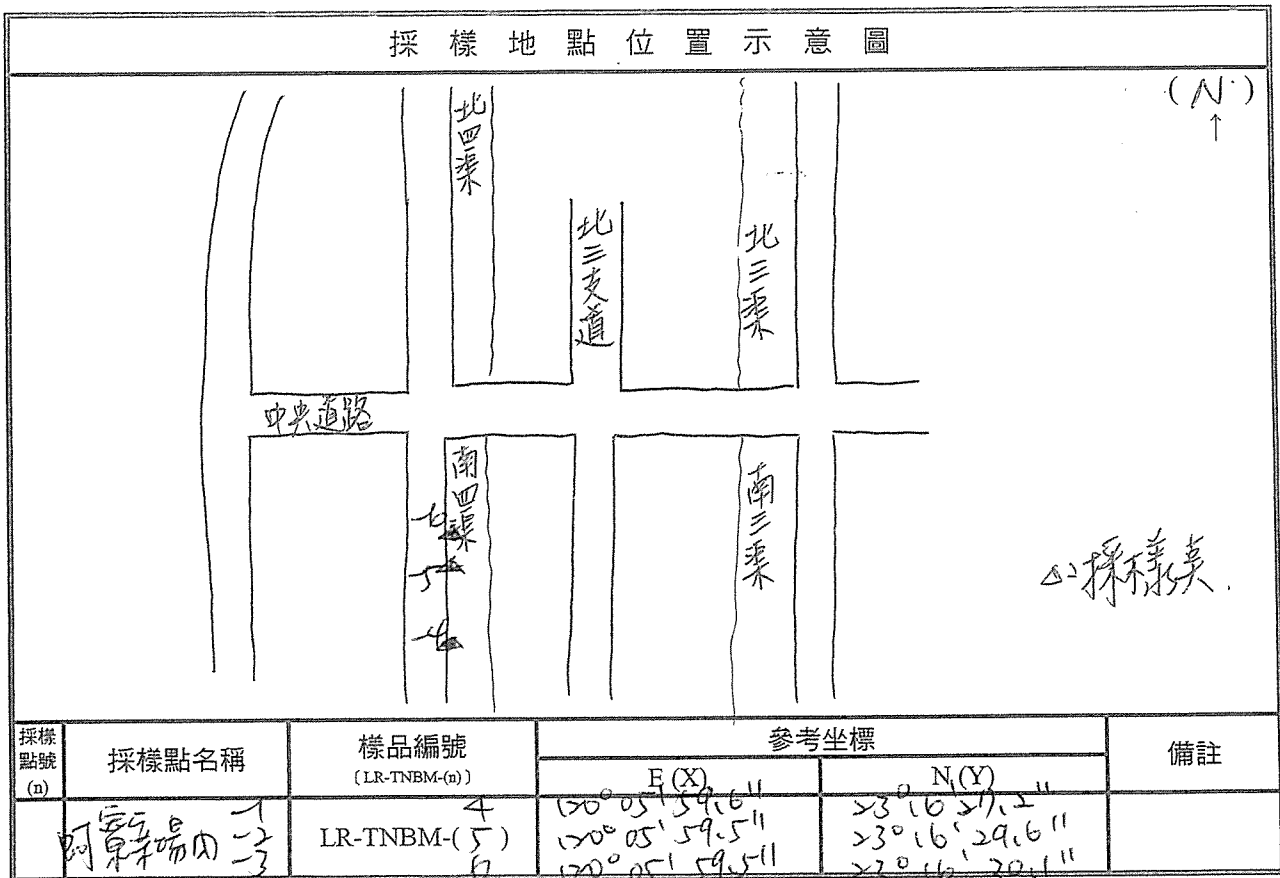 採樣地點位置示意圖
(N)
↑
北四渠
北三支道
北三渠
中央道路
南四渠
南三渠
-6
-5
-4
△:採樣點.
採樣點號(n)
採樣點名稱
樣品編號
〔LR-TNBM-(n)〕
參考坐標
E (X)
N (Y)
備註
蚵寮養場內 -1
-2
-3
4
LR-TNBM-( 5 )
6
120° 05' 59.6"
120° 05' 59.5"
120° 05' 59.5"
23° 16' 27.2"
23° 16' 29.6"